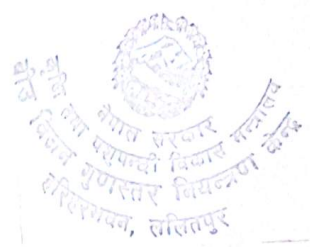 नेपाल सरकार
कृषि तथा पशुपन्छी विकास मन्त्रालय
बीउ विजन गुणस्तर नियन्त्रण केन्द्र
हरिहरभवन, ललितपुर